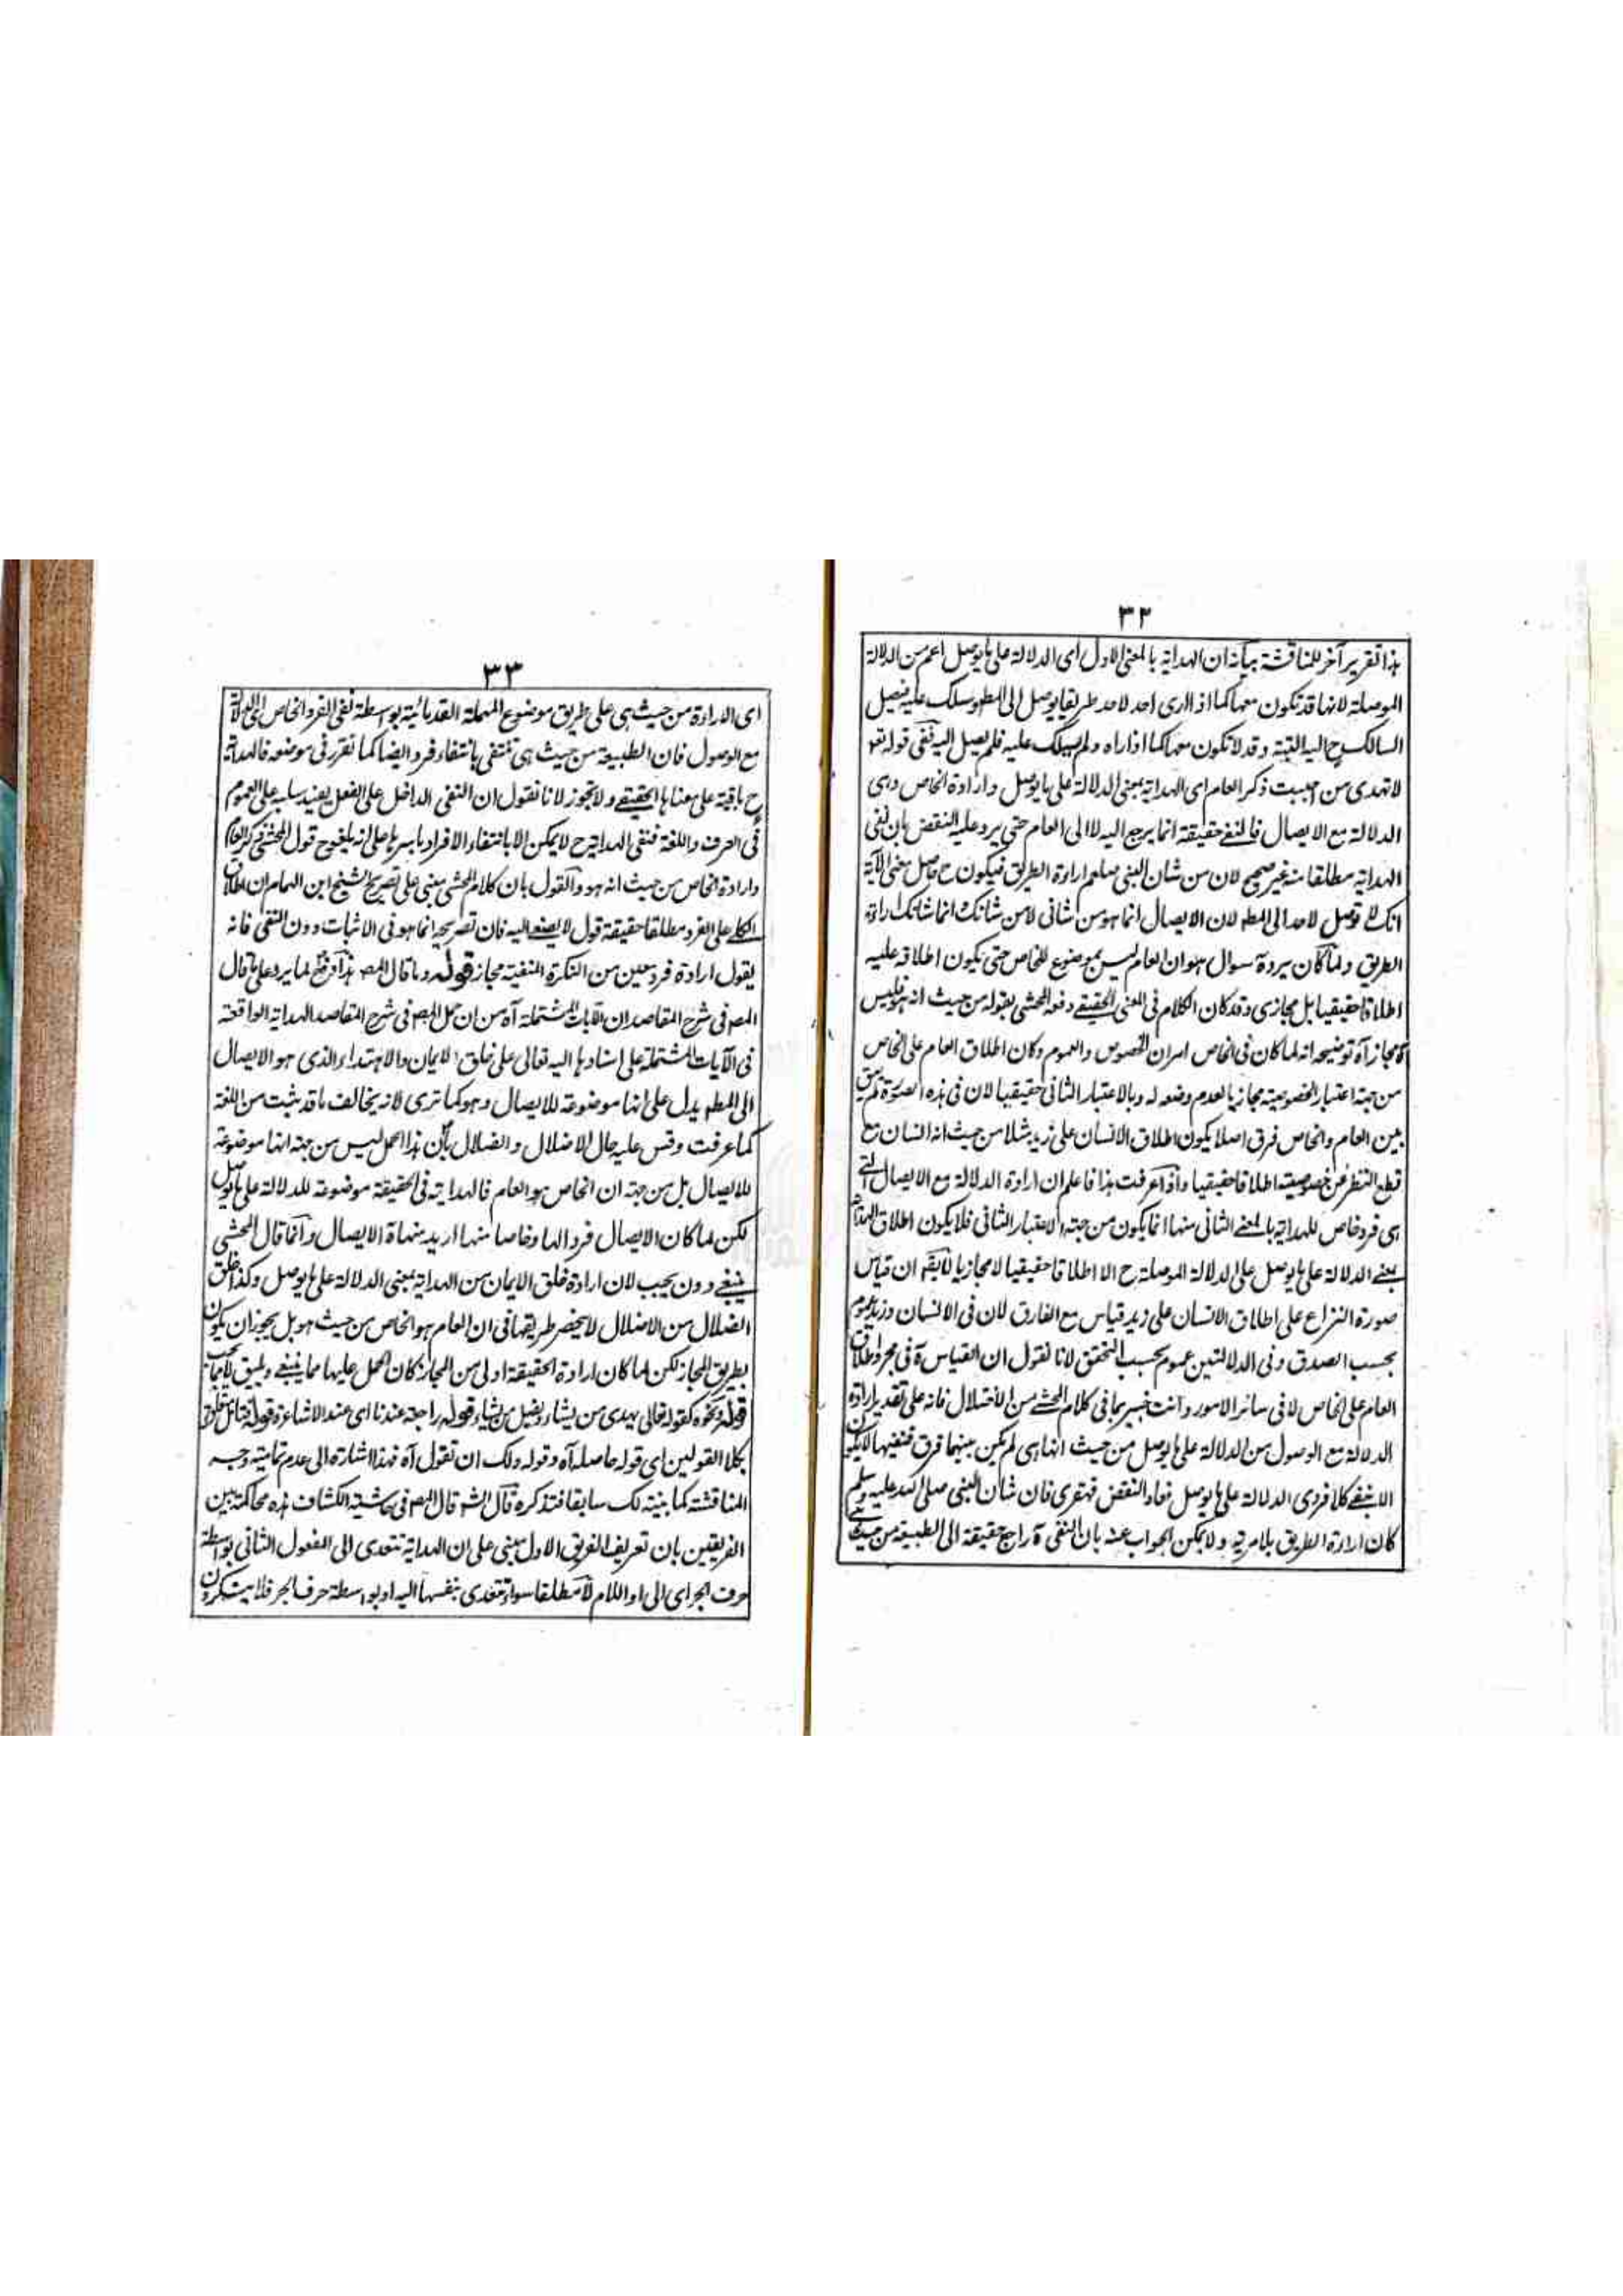 ٣٢
هذا تقرير آخر للمناقشة بيانه ان الهداية بالمعنى الاول اى الدلالة على ما يوصل اعم من الدلالة
الموصلة لانها قد تكون معها كما اذا ارى احد لاحد طريقا يوصل الى المطه وسلك عليه فيصل
السالك ح اليه البتة وقد لا تكون معها كما اذا اراه ولم يسلك عليه فلم يصل اليه ففى قوله تعه
لا تهدى من احببت ذكر العام اى الهداية بمعنى الدلالة على ما يوصل وارادة الخاص وهى
الدلالة مع الايصال فالنفى حقيقة انما يرجع اليه لا الى العام حتى يرد عليه النقض بان نفى
الهداية مطلقا منه غير صحيح لان من شان النبى صلعم اراءة الطريق فيكون ح حاصل معنى الآية
انك لا توصل لاحد الى المطه لان الايصال انما هو من شانى لا من شانك وانما شانك اراءة
الطريق ولما كان يرد ههنا سوال هو ان العام ليس بموضوع للخاص حتى يكون اطلاقه عليه
اطلاقا حقيقيا بل مجازى وقد كان الكلام فى المعنى الحقيقى دفعه المحشى بقوله من حيث انه هو فليس
مجازا آه توضيحه انه لما كان فى الخاص امران الخصوص والعموم وكان اطلاق العام على الخاص
من جهة اعتبار الخصوصية مجازيا لعدم وضعه له وبالاعتبار الثانى حقيقيا لان فى هذه الصورة لم يبق
بين العام والخاص فرق اصلا يكون اطلاق الانسان على زيد مثلا من حيث انه انسان مع
قطع النظر عن خصوصيته اطلاقا حقيقيا واذا عرفت هذا فاعلم ان ارادة الدلالة مع الايصال التى
هى فرد خاص للهداية بالمعنى الثانى منها انما يكون من جهة الاعتبار الثانى فلا يكون اطلاق الهداية
بمعنى الدلالة على ما يوصل على الدلالة الموصلة ح الا اطلاقا حقيقيا لا مجازيا لا يقه ان قياس
صورة النزاع على اطلاق الانسان على زيد قياس مع الفارق لان فى الانسان وزيد عموم
بحسب الصدق وفى الدلالتين عموم بحسب التحقق لانا نقول ان القياس ههنا فى مجرد اطلاق
العام على الخاص لا فى سائر الامور وانت خبير بما فى كلام المحشى من الاختلال فانه على تقدير ارادة
الدلالة مع الوصول من الدلالة على ما يوصل من حيث انها هى لم يكن بينهما فرق فنفيها لا يكون
الا بنفى كلا فردى الدلالة على ما يوصل فعاد النقض قهقرى فان شان النبى صلى الله عليه وسلم
كان اراءة الطريق بلا مرية ولا يمكن الجواب عنه بان النفى ههنا راجع حقيقة الى الطبيعة من حيث هى
٣٣
اى الارادة من حيث هى على طريق موضوع المهملة القدمائية بواسطة نفى الفرد الخاص اى الدلالة
مع الوصول فان الطبيعة من حيث هى تنتفى بانتفاء فرد ايضا كما تقرر فى موضعه فالهداية
ح باقية على معناها الحقيقى ولا تجوز لانا نقول ان النفى الداخل على الفعل يفيد سلبه على العموم
فى العرف واللغة فنفى الهداية ح لا يمكن الا بانتفاء الافراد باسرها على انه يلغو ح قول المحشى ذكر العام
وارادة الخاص من حيث انه هو والقول بان كلام المحشى مبنى على تصريح الشيخ ابن الهمام ان اطلاق
الكلى على الفرد مطلقا حقيقة قول لا يصغى اليه فان تصريحه انما هو فى الاثبات دون النفى فانه
يقول ارادة فرد معين من النكرة المنفية مجاز قوله وما قال المصه هذا دفع لما يرد على ما قال
المصه فى شرح المقاصد ان الآيات المشتملة آه من ان حمل المصه فى شرح المقاصد الهداية الواقعة
فى الآيات المشتملة على اسنادها اليه تعالى على خلق الايمان والاهتداء الذى هو الايصال
الى المطه يدل على انها موضوعة للايصال وهو كما ترى لانه يخالف ما قد يثبت من اللغة
كما عرفت وقس عليه حال الاضلال والضلال بان هذا الحمل ليس من جهة انها موضوعة
للايصال بل من جهة ان الخاص هو العام فالهداية فى الحقيقة موضوعة للدلالة على ما يوصل
لكن لما كان الايصال فردا لها وخاصا منها اريد منها ههنا الايصال وانما قال المحشى
ينبغى دون يجب لان ارادة خلق الايمان من الهداية بمعنى الدلالة على ما يوصل وكذا خلق
الضلال من الاضلال لا ينحصر طريقها فى ان العام هو الخاص من حيث هو بل يجوز ان يكون
بطريق المجاز لكن لما كان ارادة الحقيقة اولى من المجاز كان الحمل عليها مما ينبغى ويليق لا مما يجب
قوله ونحوه كقوله تعالى يهدى من يشاء ويضل من يشاء قوله راجعة عندنا اى عند الاشاعرة قوله
بكلا القولين اى قوله حاصله آه وقوله ولك ان تقول آه فهذا اشارة الى عدم تمامية وجه
المناقشة كما بينته لك سابقا فتذكره قال الشه قال المصه فى حاشية الكشاف هذه محاكمة بين
الفريقين بان تعريف الفريق الاول مبنى على ان الهداية تتعدى الى المفعول الثانى بواسطة
حرف الجر اى الى او اللام لا مطلقا سواء تتعدى بنفسها اليه او بواسطة حرف الجر فلا يستكرون